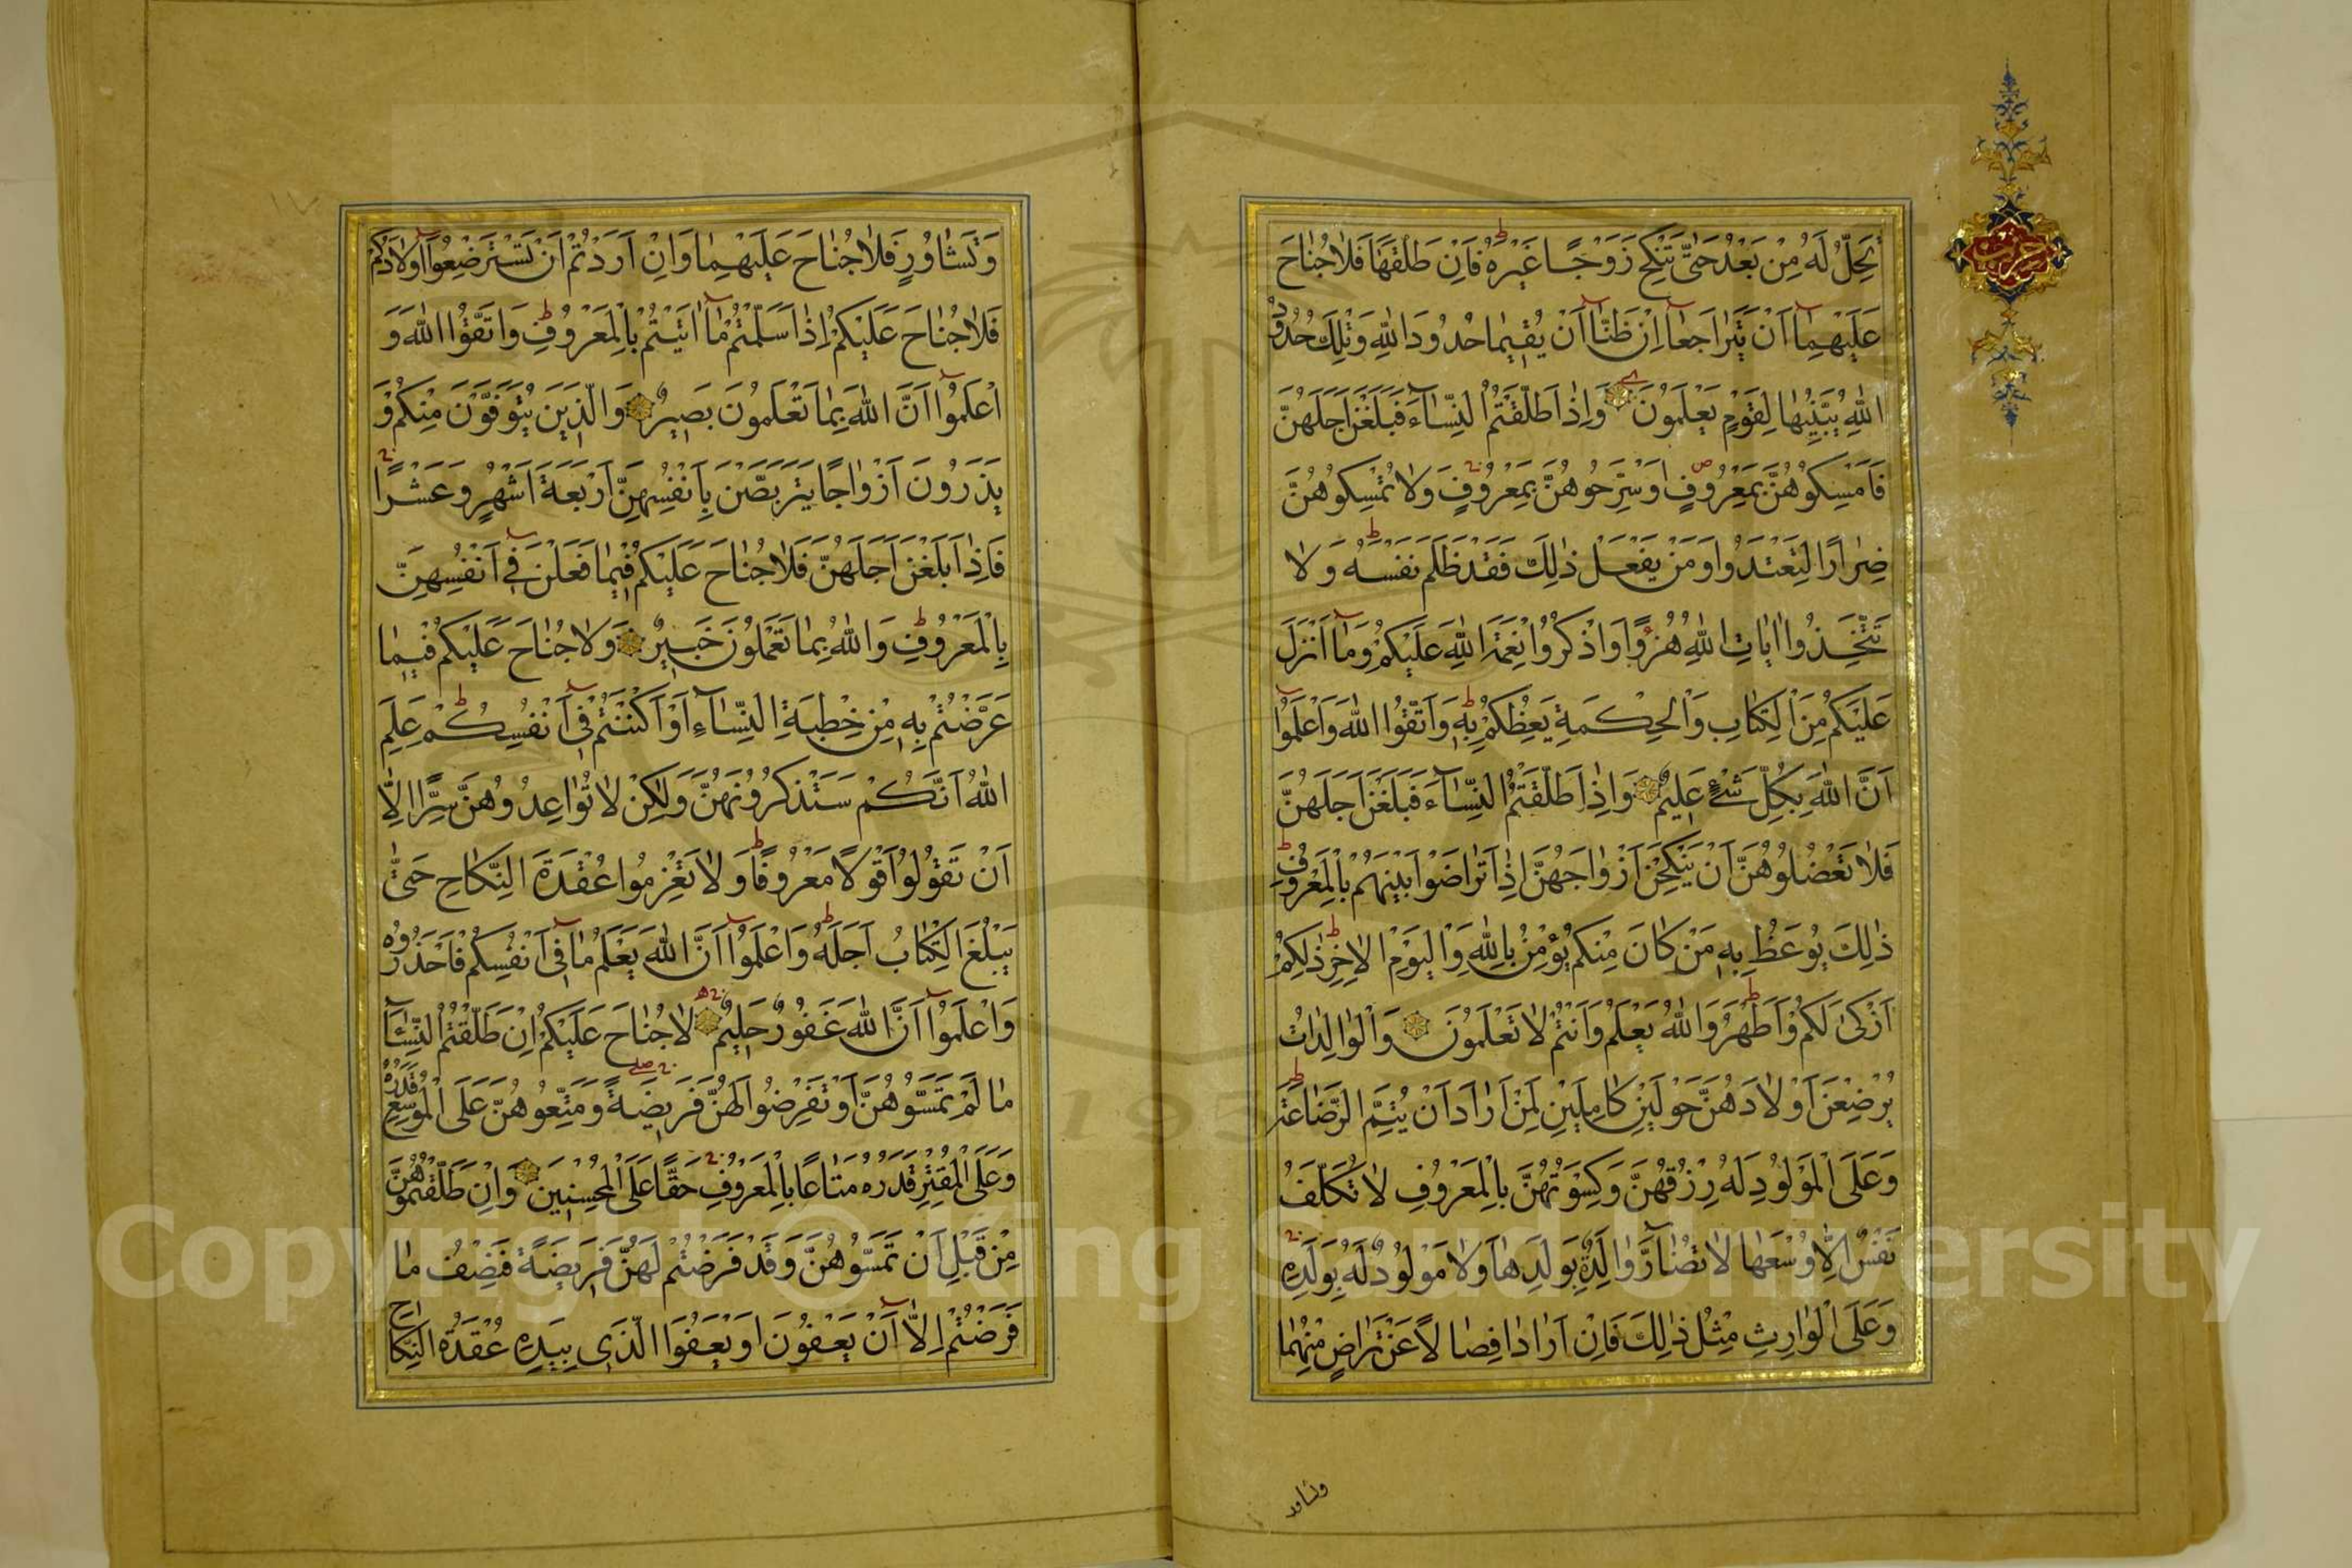 تَحِلُّ لَهُ مِنْ بَعْدُ حَتّٰى تَنْكِحَ زَوْجًا غَيْرَهُ فَاِنْ طَلَّقَهَا فَلَا جُنَاحَ
عَلَيْهِمَآ اَنْ يَتَرَاجَعَآ اِنْ ظَنَّآ اَنْ يُقِيمَا حُدُودَ اللّٰهِ وَتِلْكَ حُدُودُ
اللّٰهِ يُبَيِّنُهَا لِقَوْمٍ يَعْلَمُونَ وَاِذَا طَلَّقْتُمُ النِّسَآءَ فَبَلَغْنَ اَجَلَهُنَّ
فَاَمْسِكُوهُنَّ بِمَعْرُوفٍ اَوْ سَرِّحُوهُنَّ بِمَعْرُوفٍ وَلَا تُمْسِكُوهُنَّ
ضِرَارًا لِتَعْتَدُوا وَمَنْ يَفْعَلْ ذٰلِكَ فَقَدْ ظَلَمَ نَفْسَهُ وَلَا
تَتَّخِذُوا اٰيَاتِ اللّٰهِ هُزُؤًا وَاذْكُرُوا نِعْمَةَ اللّٰهِ عَلَيْكُمْ وَمَآ اَنْزَلَ
عَلَيْكُمْ مِنَ الْكِتَابِ وَالْحِكْمَةِ يَعِظُكُمْ بِهِ وَاتَّقُوا اللّٰهَ وَاعْلَمُوا
اَنَّ اللّٰهَ بِكُلِّ شَيْءٍ عَلِيمٌ وَاِذَا طَلَّقْتُمُ النِّسَآءَ فَبَلَغْنَ اَجَلَهُنَّ
فَلَا تَعْضُلُوهُنَّ اَنْ يَنْكِحْنَ اَزْوَاجَهُنَّ اِذَا تَرَاضَوْا بَيْنَهُمْ بِالْمَعْرُوفِ
ذٰلِكَ يُوعَظُ بِهِ مَنْ كَانَ مِنْكُمْ يُؤْمِنُ بِاللّٰهِ وَالْيَوْمِ الْاٰخِرِ ذٰلِكُمْ
اَزْكٰى لَكُمْ وَاَطْهَرُ وَاللّٰهُ يَعْلَمُ وَاَنْتُمْ لَا تَعْلَمُونَ وَالْوَالِدَاتُ
يُرْضِعْنَ اَوْلَادَهُنَّ حَوْلَيْنِ كَامِلَيْنِ لِمَنْ اَرَادَ اَنْ يُتِمَّ الرَّضَاعَةَ
وَعَلَى الْمَوْلُودِ لَهُ رِزْقُهُنَّ وَكِسْوَتُهُنَّ بِالْمَعْرُوفِ لَا تُكَلَّفُ
نَفْسٌ اِلَّا وُسْعَهَا لَا تُضَآرَّ وَالِدَةٌ بِوَلَدِهَا وَلَا مَوْلُودٌ لَهُ بِوَلَدِهِ
وَعَلَى الْوَارِثِ مِثْلُ ذٰلِكَ فَاِنْ اَرَادَا فِصَالًا عَنْ تَرَاضٍ مِنْهُمَا
وتشاور
وَتَشَاوُرٍ فَلَا جُنَاحَ عَلَيْهِمَا وَاِنْ اَرَدْتُمْ اَنْ تَسْتَرْضِعُوا اَوْلَادَكُمْ
فَلَا جُنَاحَ عَلَيْكُمْ اِذَا سَلَّمْتُمْ مَآ اٰتَيْتُمْ بِالْمَعْرُوفِ وَاتَّقُوا اللّٰهَ وَ
اعْلَمُوا اَنَّ اللّٰهَ بِمَا تَعْمَلُونَ بَصِيرٌ وَالَّذِينَ يُتَوَفَّوْنَ مِنْكُمْ وَ
يَذَرُونَ اَزْوَاجًا يَتَرَبَّصْنَ بِاَنْفُسِهِنَّ اَرْبَعَةَ اَشْهُرٍ وَعَشْرًا
فَاِذَا بَلَغْنَ اَجَلَهُنَّ فَلَا جُنَاحَ عَلَيْكُمْ فِيمَا فَعَلْنَ فِي اَنْفُسِهِنَّ
بِالْمَعْرُوفِ وَاللّٰهُ بِمَا تَعْمَلُونَ خَبِيرٌ وَلَا جُنَاحَ عَلَيْكُمْ فِيمَا
عَرَّضْتُمْ بِهِ مِنْ خِطْبَةِ النِّسَآءِ اَوْ اَكْنَنْتُمْ فِي اَنْفُسِكُمْ عَلِمَ
اللّٰهُ اَنَّكُمْ سَتَذْكُرُونَهُنَّ وَلٰكِنْ لَا تُوَاعِدُوهُنَّ سِرًّا اِلَّا
اَنْ تَقُولُوا قَوْلًا مَعْرُوفًا وَلَا تَعْزِمُوا عُقْدَةَ النِّكَاحِ حَتّٰى
يَبْلُغَ الْكِتَابُ اَجَلَهُ وَاعْلَمُوا اَنَّ اللّٰهَ يَعْلَمُ مَا فِي اَنْفُسِكُمْ فَاحْذَرُوهُ
وَاعْلَمُوا اَنَّ اللّٰهَ غَفُورٌ حَلِيمٌ لَا جُنَاحَ عَلَيْكُمْ اِنْ طَلَّقْتُمُ النِّسَآءَ
مَا لَمْ تَمَسُّوهُنَّ اَوْ تَفْرِضُوا لَهُنَّ فَرِيضَةً وَمَتِّعُوهُنَّ عَلَى الْمُوسِعِ قَدَرُهُ
وَعَلَى الْمُقْتِرِ قَدَرُهُ مَتَاعًا بِالْمَعْرُوفِ حَقًّا عَلَى الْمُحْسِنِينَ وَاِنْ طَلَّقْتُمُوهُنَّ
مِنْ قَبْلِ اَنْ تَمَسُّوهُنَّ وَقَدْ فَرَضْتُمْ لَهُنَّ فَرِيضَةً فَنِصْفُ مَا
فَرَضْتُمْ اِلَّا اَنْ يَعْفُونَ اَوْ يَعْفُوَا الَّذِي بِيَدِهِ عُقْدَةُ النِّكَاحِ
Copyright © King Saud University